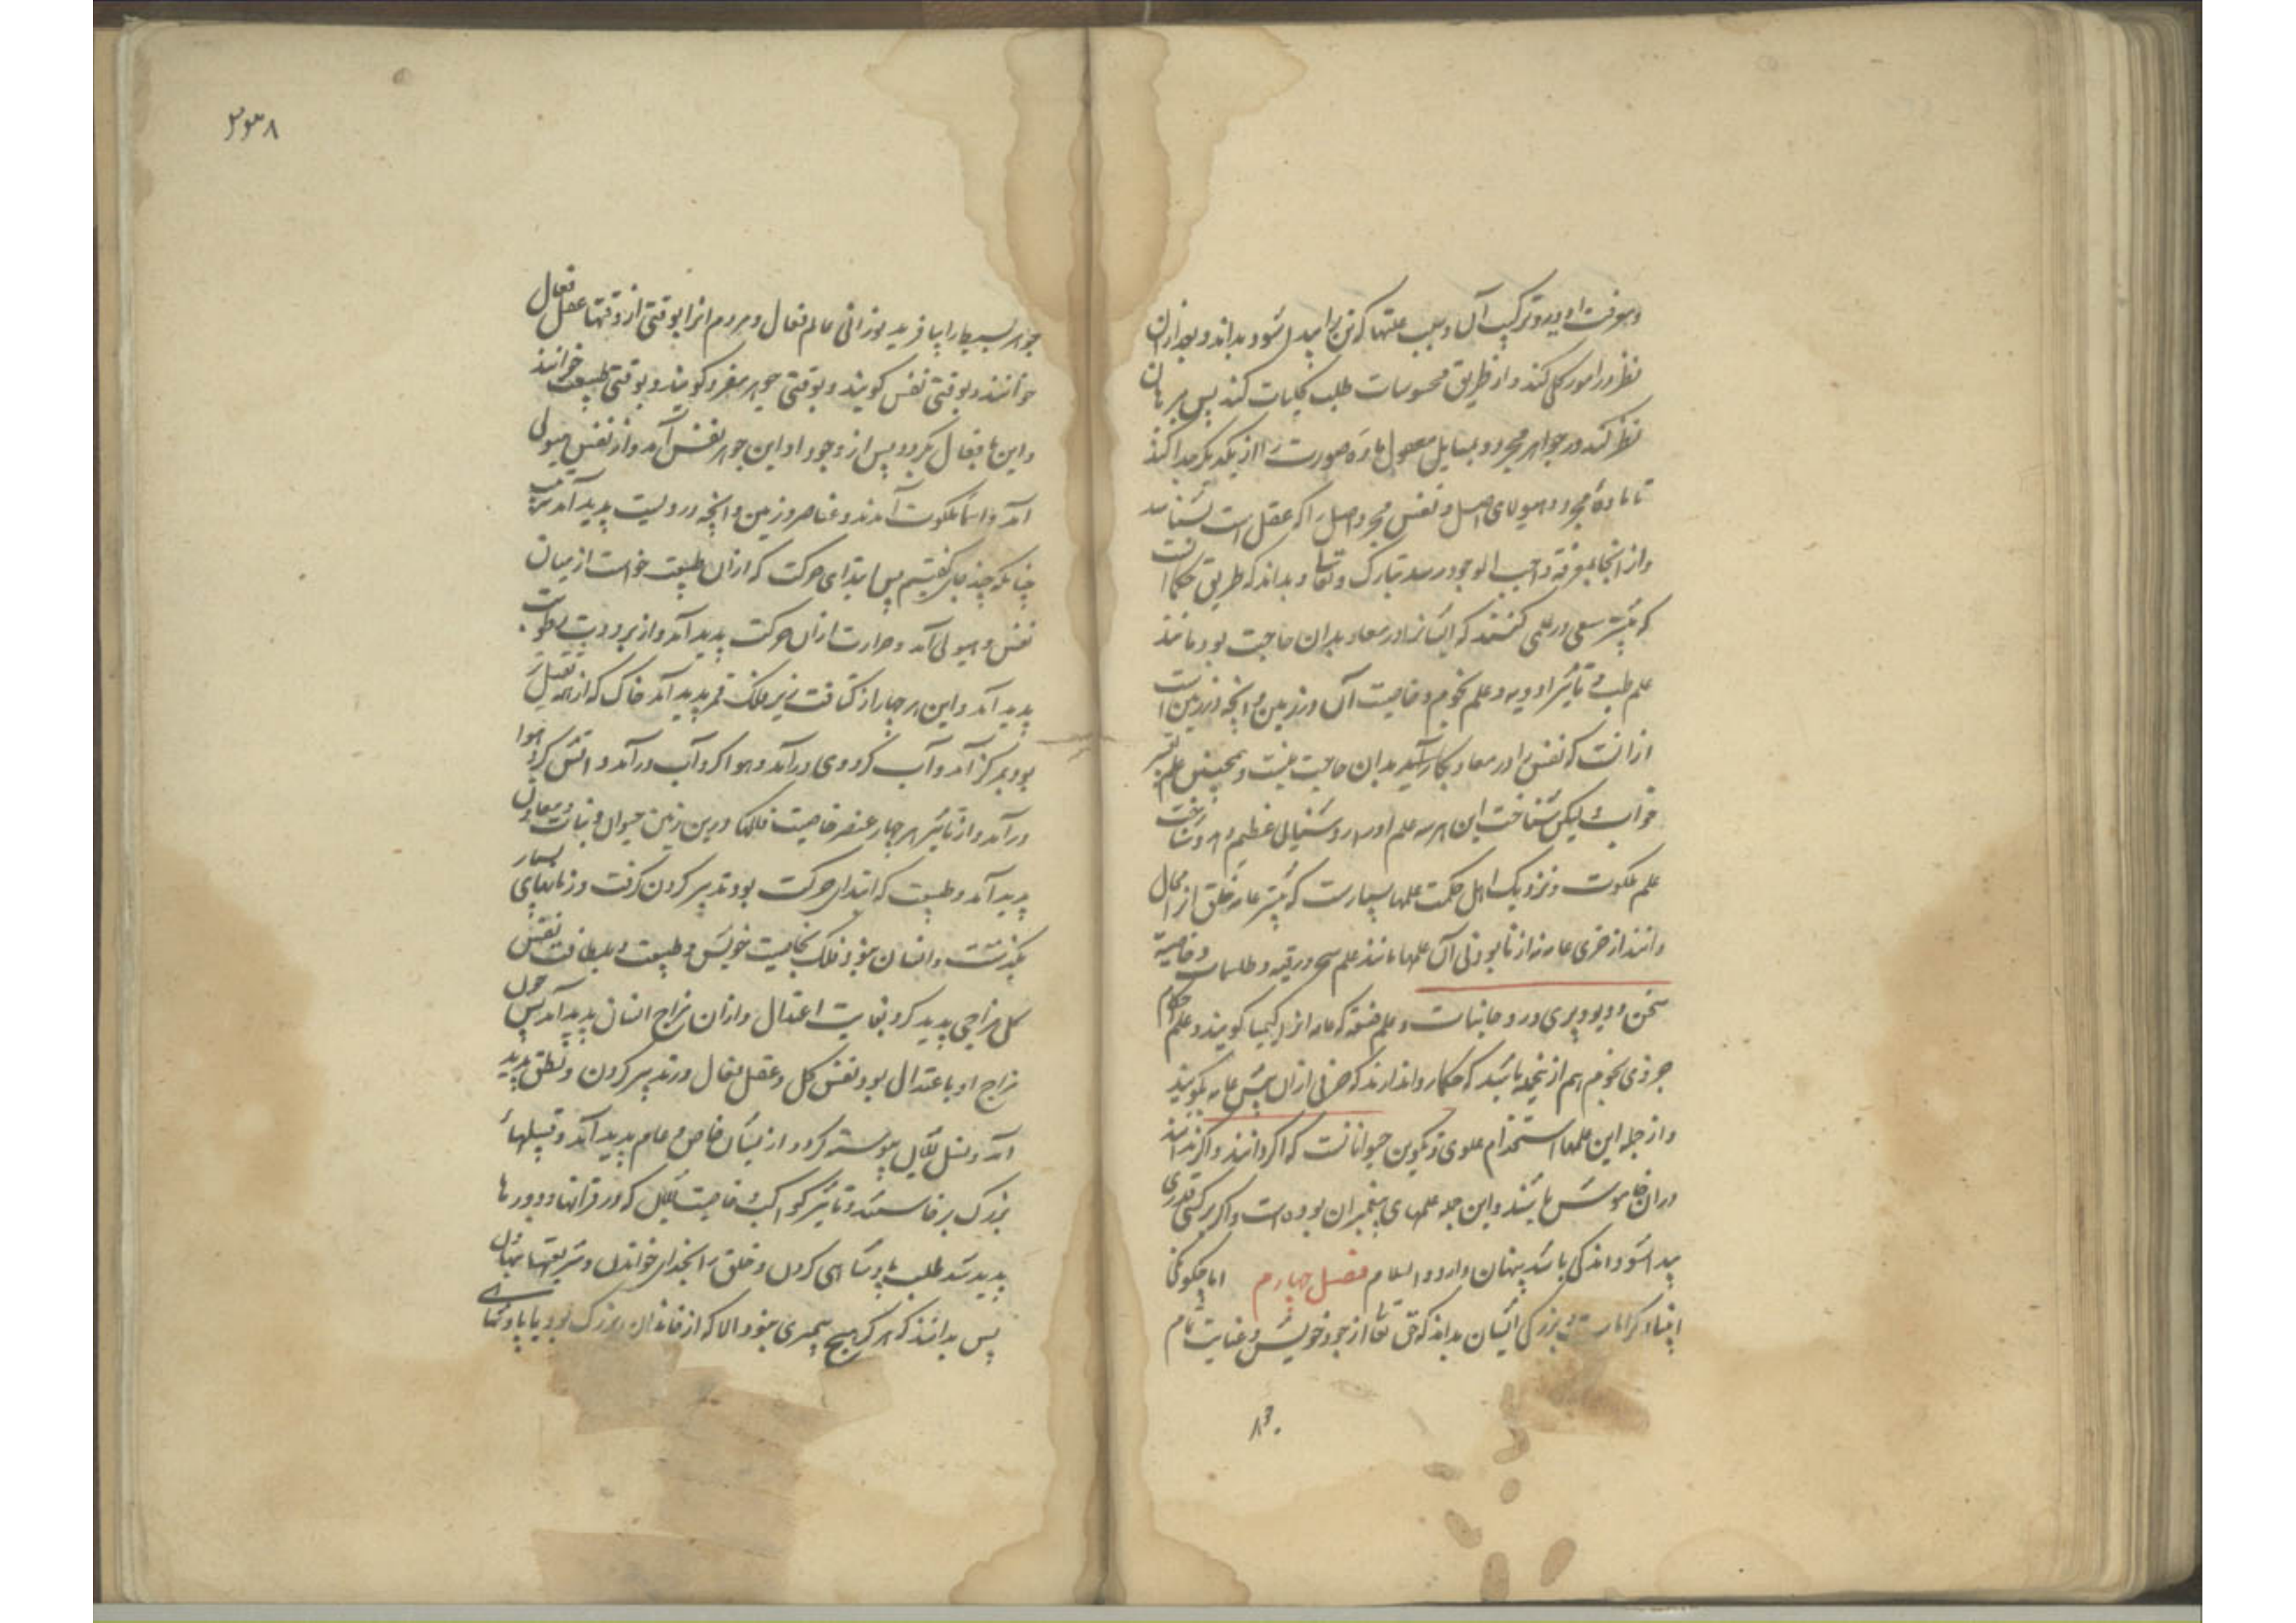 ومعرفت ادویه و ترکیب آن و سبب علتها که تن را پیدا شود بداند و بعد ازان
نظر در امور کلی کند و از طریق محسوسات طلب کلیات کند پس ببرهان
نظر کند در جواهر مجرد و بسایل معقول ماده و صورت را از یکدیگر جدا کند
تا ماده مجرد و هیولای اصل و نفس مجرد اصل را که عقل است بشناسد
و از انجا بمعرفة واجب الوجود رسد تبارک و تعالی و بداند که طریق حکما انست
که بیشتر سعی در علمی کنند که ایشانرا در معاد بدان حاجت بود مانند
علم طب و تاثیر ادویه و علم نجوم و خاصیت آن و زمین و انچه در زمین است
ازانست که نفس را در معاد بکار آید بدان حاجت نیست و همچنین علم تعبیر
خواب لیکن شناخت این هر سه علم او را روشنیای عظیم دهد و شناخت
علم ملکوت و نزدیک اهل حکمت علمها بسیارست که بیشتر عامه خلق از محال
دانند از خری عامه نه از نابودنی آن علمها مانند علم سحر و رقیه و طلسمات و خاصیة
سخن و دیو و پری و روحانیات و علم صنعة که عامه انرا کیمیا گویند و علم احکام
جزوی نجوم هم ازینجمله باشد که حکما روا ندارند که حرفی ازان پیش عامه بگویند
و از جمله این علمها استخدام علوی و تکوین حیواناتست که اگر دانند و اگر ندانند
دران خاموش باشند و این جمله علمهای پیغمبران بوده است و اگر بر کسی قدری
پیدا شود اندکی باشد پنهان دارد والسلام فصل چهارم اما چگونگی
انبیا و کرامات و بزرگی ایشان بداند که حق تعالی از جود خویش و عنایت تمام
۸۳۰
۲۳۸
جواهر بسیط را بیافرید نورانی عالم فعال و مردم انرا بوقتی از وقتها عقل فعال
خوانند و بوقتی نفس گویند و بوقتی جوهر مفرد گویند و بوقتی طبیعت خوانند
و این تا بفعال بگردد پس از وجود او این جوهر نفس آمد و از نفس هیولی
امد و اسما بملکوت آمدند و عناصر و زمین و انچه در ویست پدید آمد بترتیب
چنانکه چند جای گفتیم پس ابتدای حرکت که ازان طبیعت خواست از میان
نفس و هیولی آمد و حرارت ازان حرکت پدید آمد و از برودت رطوبت
پدید آمد و این هر چهار از کثافت زیر فلک قمر پدید آمد خاک که از همه ثقیل تر
بود بمرکز آمد و آب گرد وی درآمد و هوا گرد آب درآمد و اتش گرد هوا
درآمد و از تاثیر هر چهار عنصر خاصیت فلکها درین زمین حیوان و نبات و معادن
پدید آمد و طبیعت که ابتدای حرکت بود تدبیر کردن گرفت و زمانهای بسیار
بگذشت و انسان نبود فلک بخاصیت خویش و طبیعت و بلطافت نفس
کل مزاجی پدید کرد بغایت اعتدال و ازان مزاج انسان پدید آمد پس چون
مزاج او باعتدال بود نفس کل و عقل فعال در تدبیر کردن و نطق پدید
آمد و نسل بتکامل پیوسته کرد و از میان خاص و عام پدید آمد و قبیلهاء
بزرگ برخاستند و تاثیر کواکب و خاصیت که در قرانها و دورها
پدید شد طلب پادشاهی کردن و خلق را بخدای خواندن و شریعتها نهادن
پس بدانند که هرگز هیچ پیغمبری نبود الا که از خاندان بزرگ بود یا پادشاهی